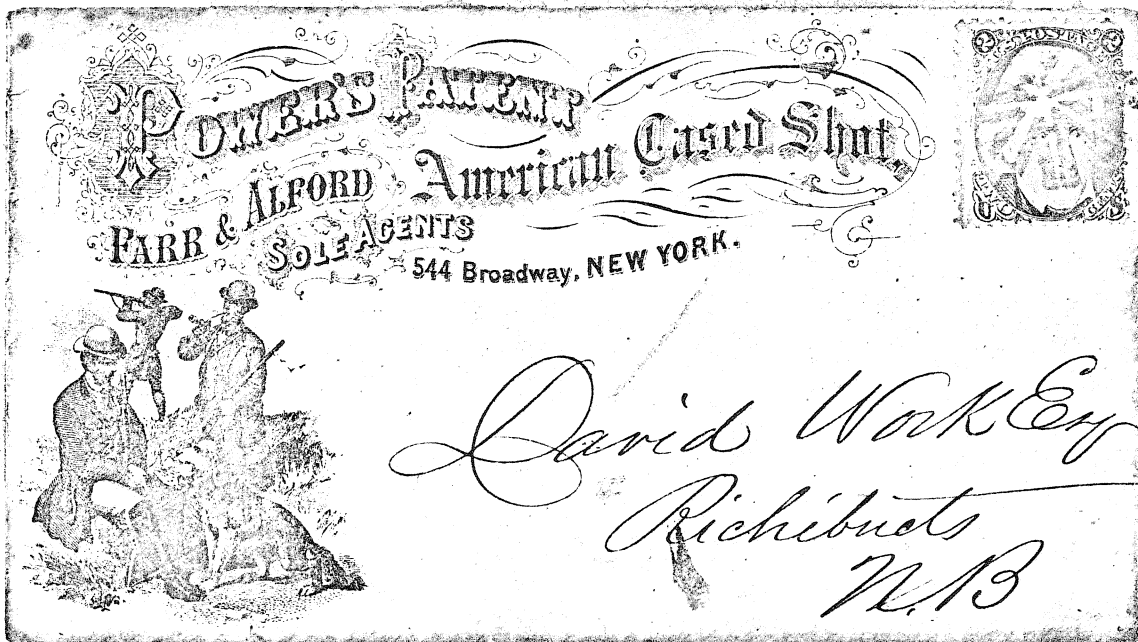 POWER'S PATENT
American Cased Shot,
FARR & ALFORD
SOLE AGENTS
544 Broadway, NEW YORK.
2 POST 2
U S
David Work Esq
Richibucto
N.B